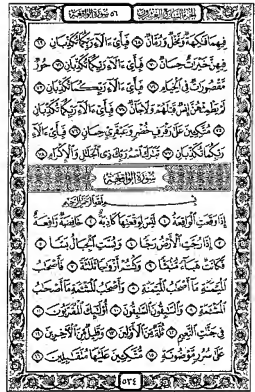 الجزء السابع والعشرون ٥٦ سورة الواقعة
فِيهِمَا فَٰكِهَةٌ وَنَخْلٌ وَرُمَّانٌ ٦٨ فَبِأَيِّ ءَالَآءِ رَبِّكُمَا تُكَذِّبَانِ ٦٩
فِيهِنَّ خَيْرَٰتٌ حِسَانٌ ٧٠ فَبِأَيِّ ءَالَآءِ رَبِّكُمَا تُكَذِّبَانِ ٧١ حُورٌ
مَّقْصُورَٰتٌ فِي ٱلْخِيَامِ ٧٢ فَبِأَيِّ ءَالَآءِ رَبِّكُمَا تُكَذِّبَانِ ٧٣
لَمْ يَطْمِثْهُنَّ إِنسٌ قَبْلَهُمْ وَلَا جَآنٌّ ٧٤ فَبِأَيِّ ءَالَآءِ رَبِّكُمَا تُكَذِّبَانِ
٧٥ مُتَّكِـِٔينَ عَلَىٰ رَفْرَفٍ خُضْرٍ وَعَبْقَرِيٍّ حِسَانٍ ٧٦ فَبِأَيِّ ءَالَآءِ
رَبِّكُمَا تُكَذِّبَانِ ٧٧ تَبَٰرَكَ ٱسْمُ رَبِّكَ ذِي ٱلْجَلَٰلِ وَٱلْإِكْرَامِ ٧٨
سورة الواقعة
بِسْمِ ٱللَّهِ ٱلرَّحْمَٰنِ ٱلرَّحِيمِ
إِذَا وَقَعَتِ ٱلْوَاقِعَةُ ١ لَيْسَ لِوَقْعَتِهَا كَاذِبَةٌ ٢ خَافِضَةٌ رَّافِعَةٌ
٣ إِذَا رُجَّتِ ٱلْأَرْضُ رَجًّا ٤ وَبُسَّتِ ٱلْجِبَالُ بَسًّا ٥
فَكَانَتْ هَبَآءً مُّنۢبَثًّا ٦ وَكُنتُمْ أَزْوَٰجًا ثَلَٰثَةً ٧ فَأَصْحَٰبُ
ٱلْمَيْمَنَةِ مَآ أَصْحَٰبُ ٱلْمَيْمَنَةِ ٨ وَأَصْحَٰبُ ٱلْمَشْـَٔمَةِ مَآ أَصْحَٰبُ
ٱلْمَشْـَٔمَةِ ٩ وَٱلسَّٰبِقُونَ ٱلسَّٰبِقُونَ ١٠ أُو۟لَٰٓئِكَ ٱلْمُقَرَّبُونَ ١١
فِي جَنَّٰتِ ٱلنَّعِيمِ ١٢ ثُلَّةٌ مِّنَ ٱلْأَوَّلِينَ ١٣ وَقَلِيلٌ مِّنَ ٱلْءَاخِرِينَ ١٤
عَلَىٰ سُرُرٍ مَّوْضُونَةٍ ١٥ مُّتَّكِـِٔينَ عَلَيْهَا مُتَقَٰبِلِينَ ١٦
٥٣٤